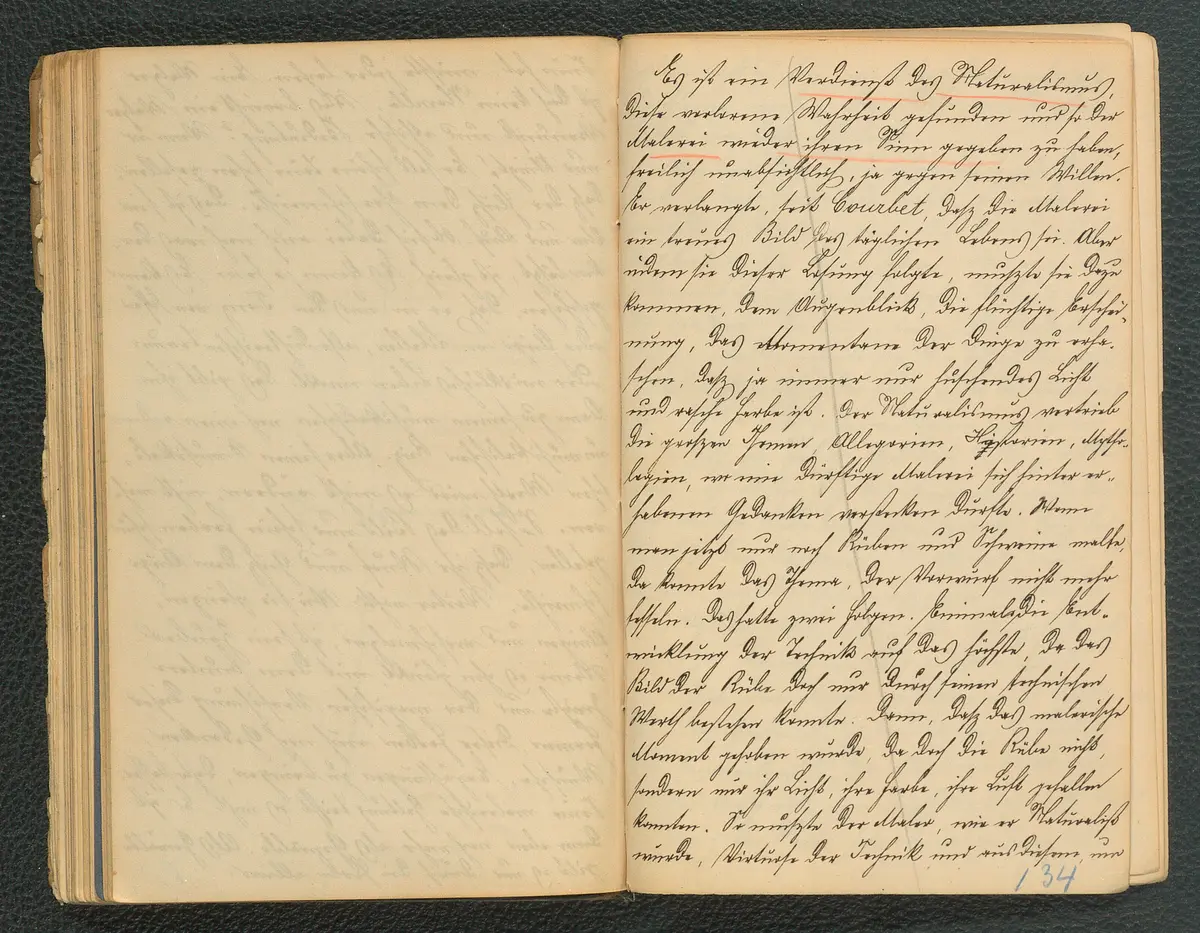 Es ist ein Verdienst des Naturalismus,
diese verlorene Wahrheit gefunden und so der
Malerei wieder ihren Sinn gegeben zu haben,
freilich unabsichtlich, ja gegen seinen Willen.
Er verlangte, seit Courbet, dasz die Malerei
ein treues Bild des täglichen Lebens sei. Aber
indem sie dieser Losung folgte, muszte sie dazu
kommen, dem Augenblick, die flüchtige Erschei-
nung, das Momentane der Dinge zu erha-
schen, dasz ja immer nur huschendes Licht
und rasche Farbe ist. Der Naturalismus vertrieb
die groszen Themen, Allegorien, Historien, Mytho-
logien, wo eine dürftige Malerei sich hinter er-
habenen Gedanken verstecken durfte. Wenn
man jetzt nur noch Rüben und Schweine malte,
da konnte das Thema, der Vorwurf nicht mehr
fesseln. Das hatte zwei Folgen. Einmal die Ent-
wicklung der Technik auf das höchste, da das
Bild der Rübe doch nur durch seinen technischen
Werth bestehen konnte. Dann, dasz das malerische
Moment gehoben wurde, da doch die Rübe nicht,
sondern nur ihr Licht, ihre Farbe, ihre Luft gefallen
konnten. So muszte der Maler, wie er Naturalist
wurde, Virtuose der Technik und aus diesem, um
134